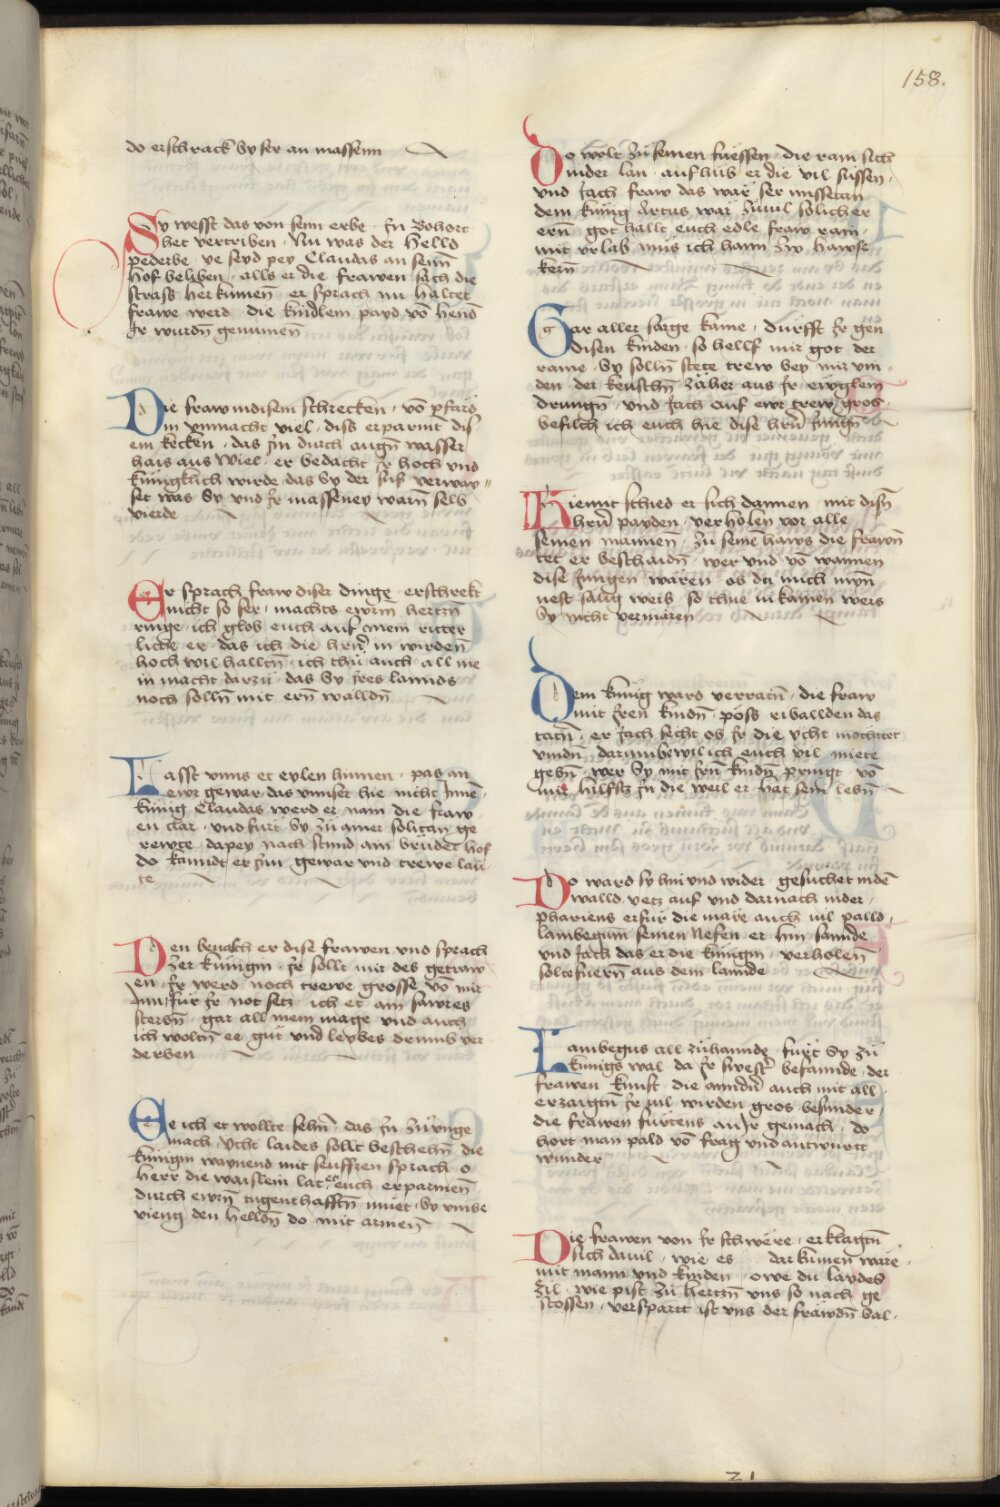 158.
do erschrack sy ser an massenn
Sy wesst das von sein erbe · jn Bohort
het vertriben · Nu was der Helld
pederbe · ye seyd pey Claudas an seinn̄
hof beliben · alls er die frawen sach die
strass her kumen̄ · er sprach nu haltet
frawe werd · die kindlein payd vō hend̄
Jr wurdn̄ genumen̄
Die fraw in disem schrecken · vō pfard̄
in vnmacht viel · diss erparmt dis̄
en kecken · das jm durch augn̄ wasser
hais aus wiel · er bedacht jr hoch vnd
künigklich wirde · das sy der suss verway
set was Sy vnd jr masseney warn̄ selb
vierde
Er sprach fraw diser dinge · erschrekt
nicht so ser · machts ewrm hertzn̄
ringe · ich glob euch auf mein ritter
liche er · das ich die hrn̄ in wirden̄
hoch wil halltn̄ · ich thů auch all me
in macht darzů · das sy jres lannds
noch solln̄ mit ern̄ walldn̄
Lasst vnns et eylen hinnen · pas an
ewr gewar · das vnnser hie nicht jnnē
künig Claudas werd er nam die fraw
en clar · vnd furt sy zů ainer solitan ge
rewte · dapey nach stund ain bruder hof
do kanndt er jm gewar vnd trewe lau
te
Den benalch er dise frawen vnd sprach
zer künigin · jr sollt mir des getraw
en · jr werd noch trewe grosse · vō mir
Inn für jr not setz · ich et am sawres
sterbn̄ · gar all mein mage vnd auch
ich woltn̄ ee · gůt vnd leybes drumb ver
derben
Ee ich et wollte sehn̄ · das jn zů ringe
mach · ycht laides sollt beschehn̄ die
künigin waynend mit seuffzen sprach · o
herr die waislein lat euch erparmen̄
durch ewrn̄ tugenthafftn̄ můet · sy vmbe
vieng den helldn̄ do mit armen̄
Do wolt zů seinen füessen · die rain sich
nider lan · auf hůb er die vil süssen ·
vnd jach fraw das wär ser missetan
dem künig Artus wär zůuil solicher
ern̄ · got hallt euch edle fraw rain
mit vrlab můs ich hann zw hawse
kern̄
Gar aller sorge kaine · dürfft jr gen
disen kinden · so hellf mir got der
raine · Sy solln̄ stete trew bey mir vin
den · der keuschn̄ zäher aus jr äwglein̄
drungn̄ · vnd jach auf ewr trew gros
befilch ich euch hie dise hrn̄ jungn̄
Hiemit schied er sich dannen · mit disn̄
hrn̄ payden · verholen vor alle
seinen mannen̄ · zů seinē haws die frawn̄
tet er beschaidn̄ · wer vnd vō wannen
dise jungen wären · ob du mich myn̄
nest sälig weib · so thue in kainen weis
sy nicht vermären
Dem künig ward verratn̄ · die fraw
mit jren kindn̄ · pöss ribballden das
tatn̄ · er jach secht ob jr die ycht möchtet
vindn̄ · darumbe wil ich euch vil miete
gebn̄ · wer sy mit jrn̄ kindn̄ pringt · vō
mir hilfftz jn die weil er hat sein lebn̄
Do ward sy hin vnd wider · gesuchet in dē
walld · yetz auf vnd darnach nider ·
phariens erfur die märe auch vil palld ·
lambegum seinen Nefen er hin sannde
vnd jach das er die künigin · verholen̄
solte fuern̄ aus dem lannde
Lambegus all zůhannde · fürt sy zů
künigs wal · da jr swest̄ befannde · der
frawen kunst · die winndn̄ auch mit all
erzaigtn̄ jr vil wirden gros besunder ·
die frawen fürtens an jr gemach · do
hort man pald vō frag vnd antwurtt
wunder
Die frawen von jr schwëre · erklagtn̄
sich dauil · wie es dar kumen wäre ·
mit mann vnd kinden · owe du laydes
zil · wie pist zů hertzn̄ vns so nach ge
stossen · verspartt ist vns der frawdn̄ sal ·
21